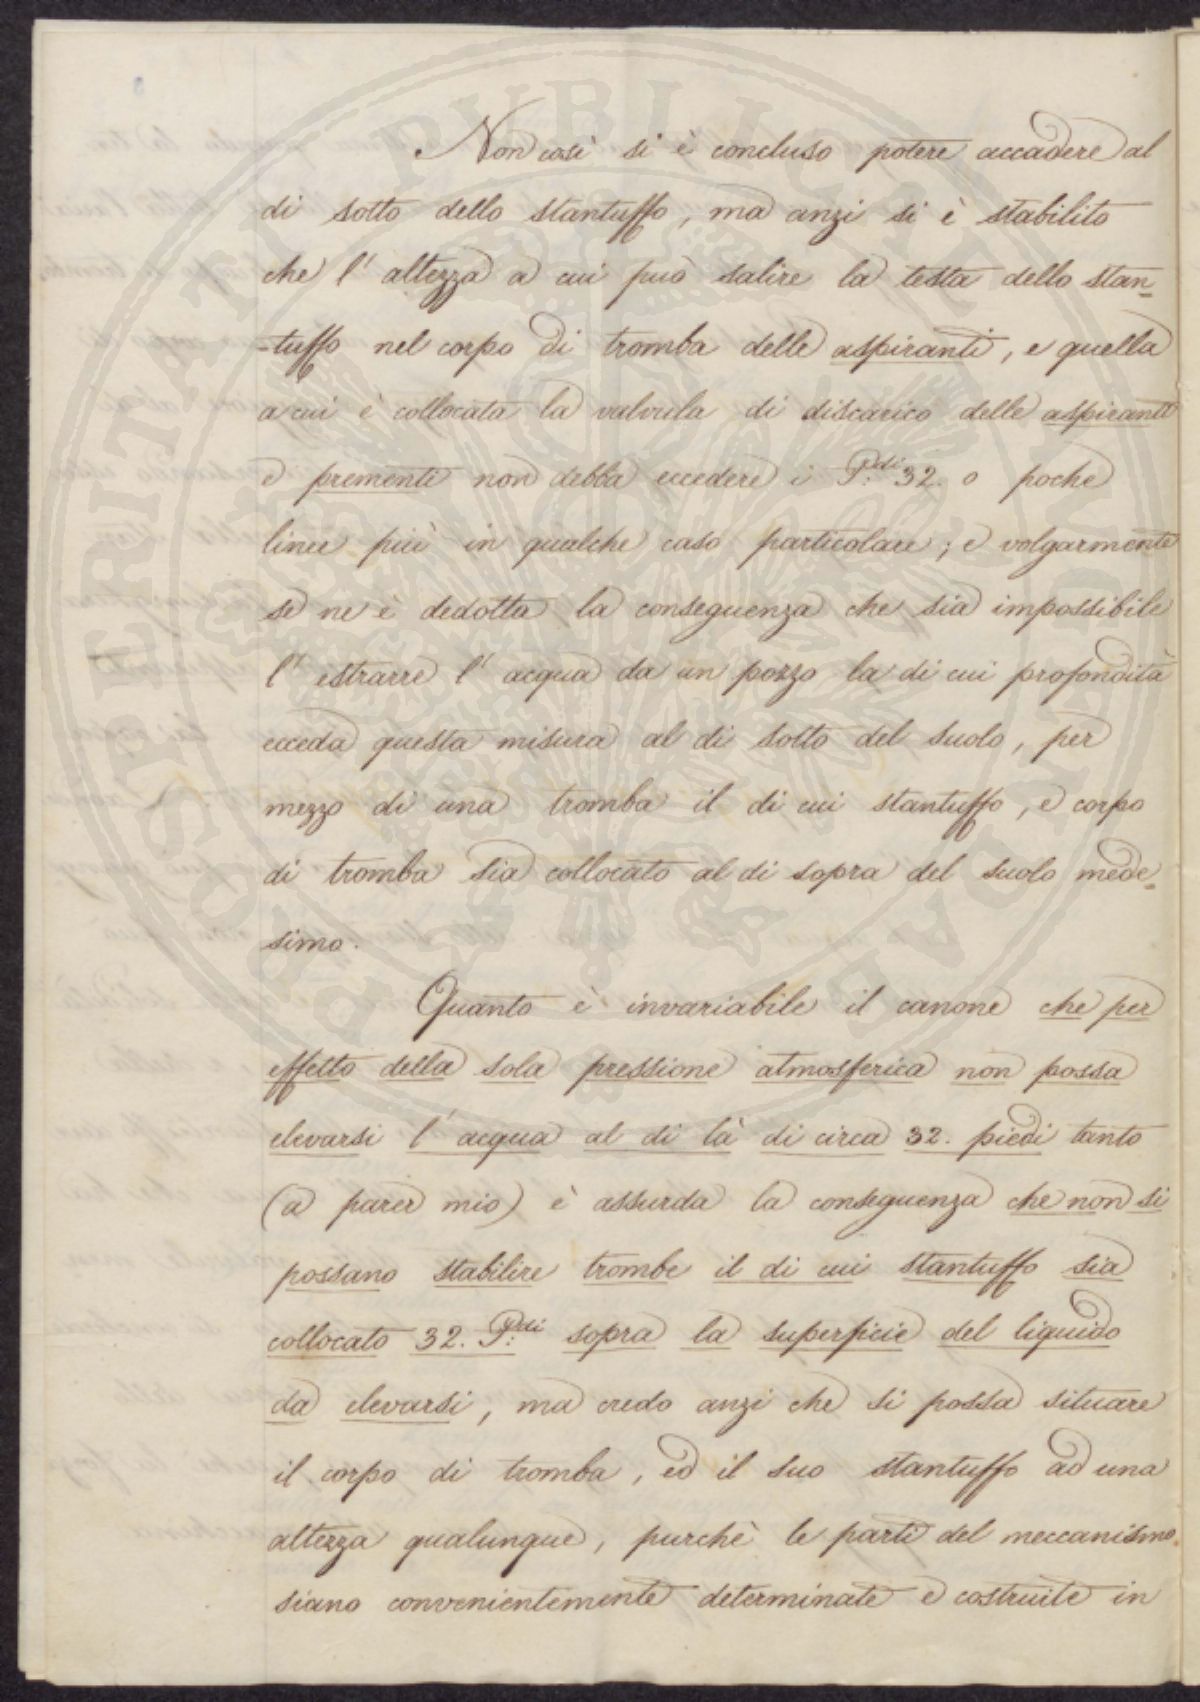 Non così si è concluso potere accadere al
di sotto dello stantuffo, ma anzi si è stabilito
che l'altezza a cui può salire la testa dello stan=
=tuffo nel corpo di tromba delle aspiranti, e quella
a cui è collocata la valvula di discarico delle aspiranti
e prementi non debba eccedere i P.di 32. o poche
linee più in qualche caso particolare; e volgarmente
se ne è dedotta la conseguenza che sia impossibile
l'estrarre l'acqua da un pozzo la di cui profondità
ecceda questa misura al di sotto del suolo, per
mezzo di una tromba il di cui stantuffo, e corpo
di tromba sia collocato al di sopra del suolo mede=
simo.
Quanto è invariabile il canone che per
effetto della sola pressione atmosferica non possa
elevarsi l'acqua al di là di circa 32. piedi tanto
(a parer mio) è assurda la conseguenza che non si
possano stabilire trombe il di cui stantuffo sia
collocato 32. P.di sopra la superficie del liquido
da elevarsi, ma credo anzi che si possa situare
il corpo di tromba, ed il suo stantuffo ad una
altezza qualunque, purchè le parti del meccanismo
siano convenientemente determinate e costruite in
PROSPERITATI PUBLICAE AUGENDAE